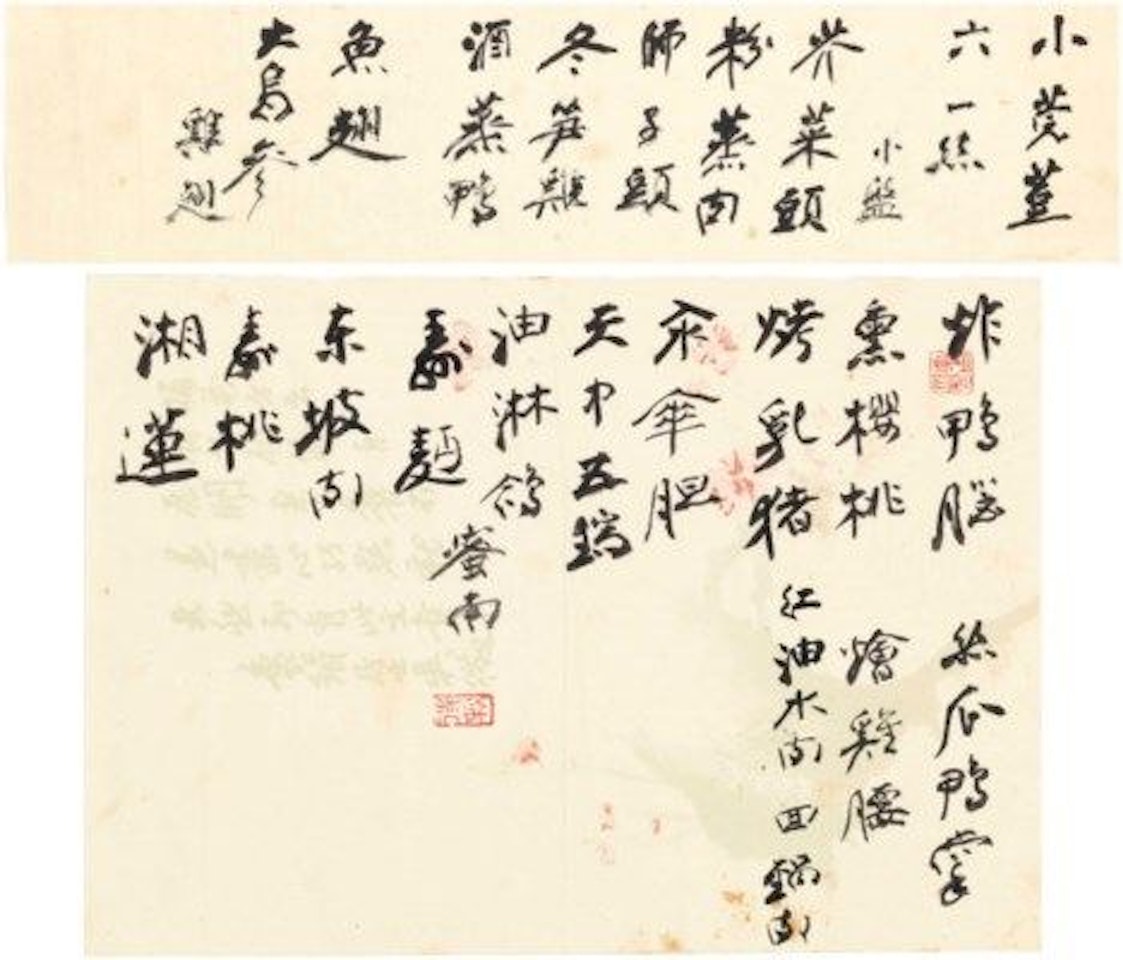 小莞荳
六一絲
小盤
芥菜頭
粉蒸肉
师子頭
冬笋雞
酒蒸鴨
魚翅
大烏參
雞翅
炸鴨腦 絲瓜鴨掌
熏櫻桃 燴雞腰
烤乳猪 红油水肉 回鍋肉
汆傘胆
天中五瑞
油淋鴿
蜜南
壽麵
东坡肉
壽桃
湘蓮